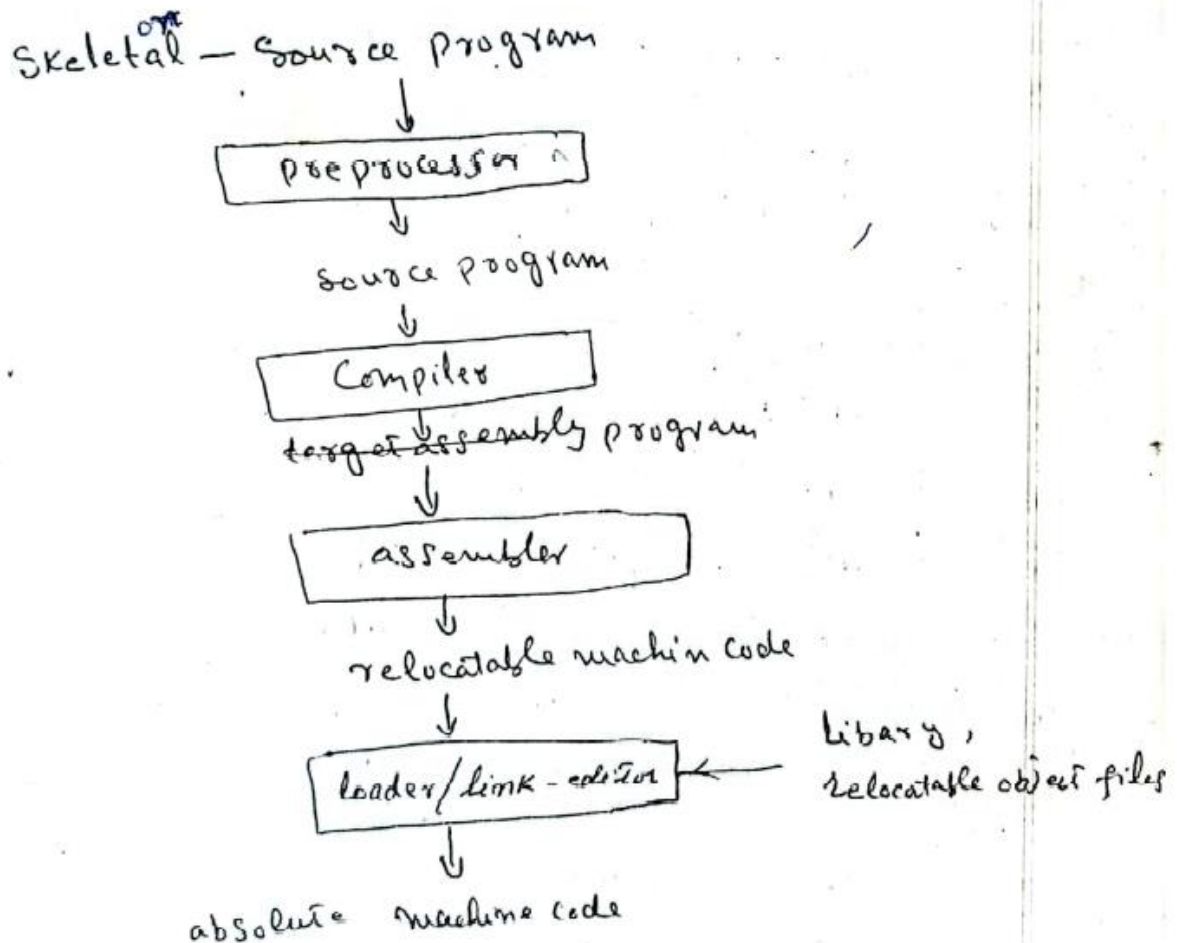 Skeletal on - Source program
preprocessor
source program
Compiler
target assembly program
assembler
relocatable machin code
libary,
loader/link-editor
relocatable object files
absolute machine code